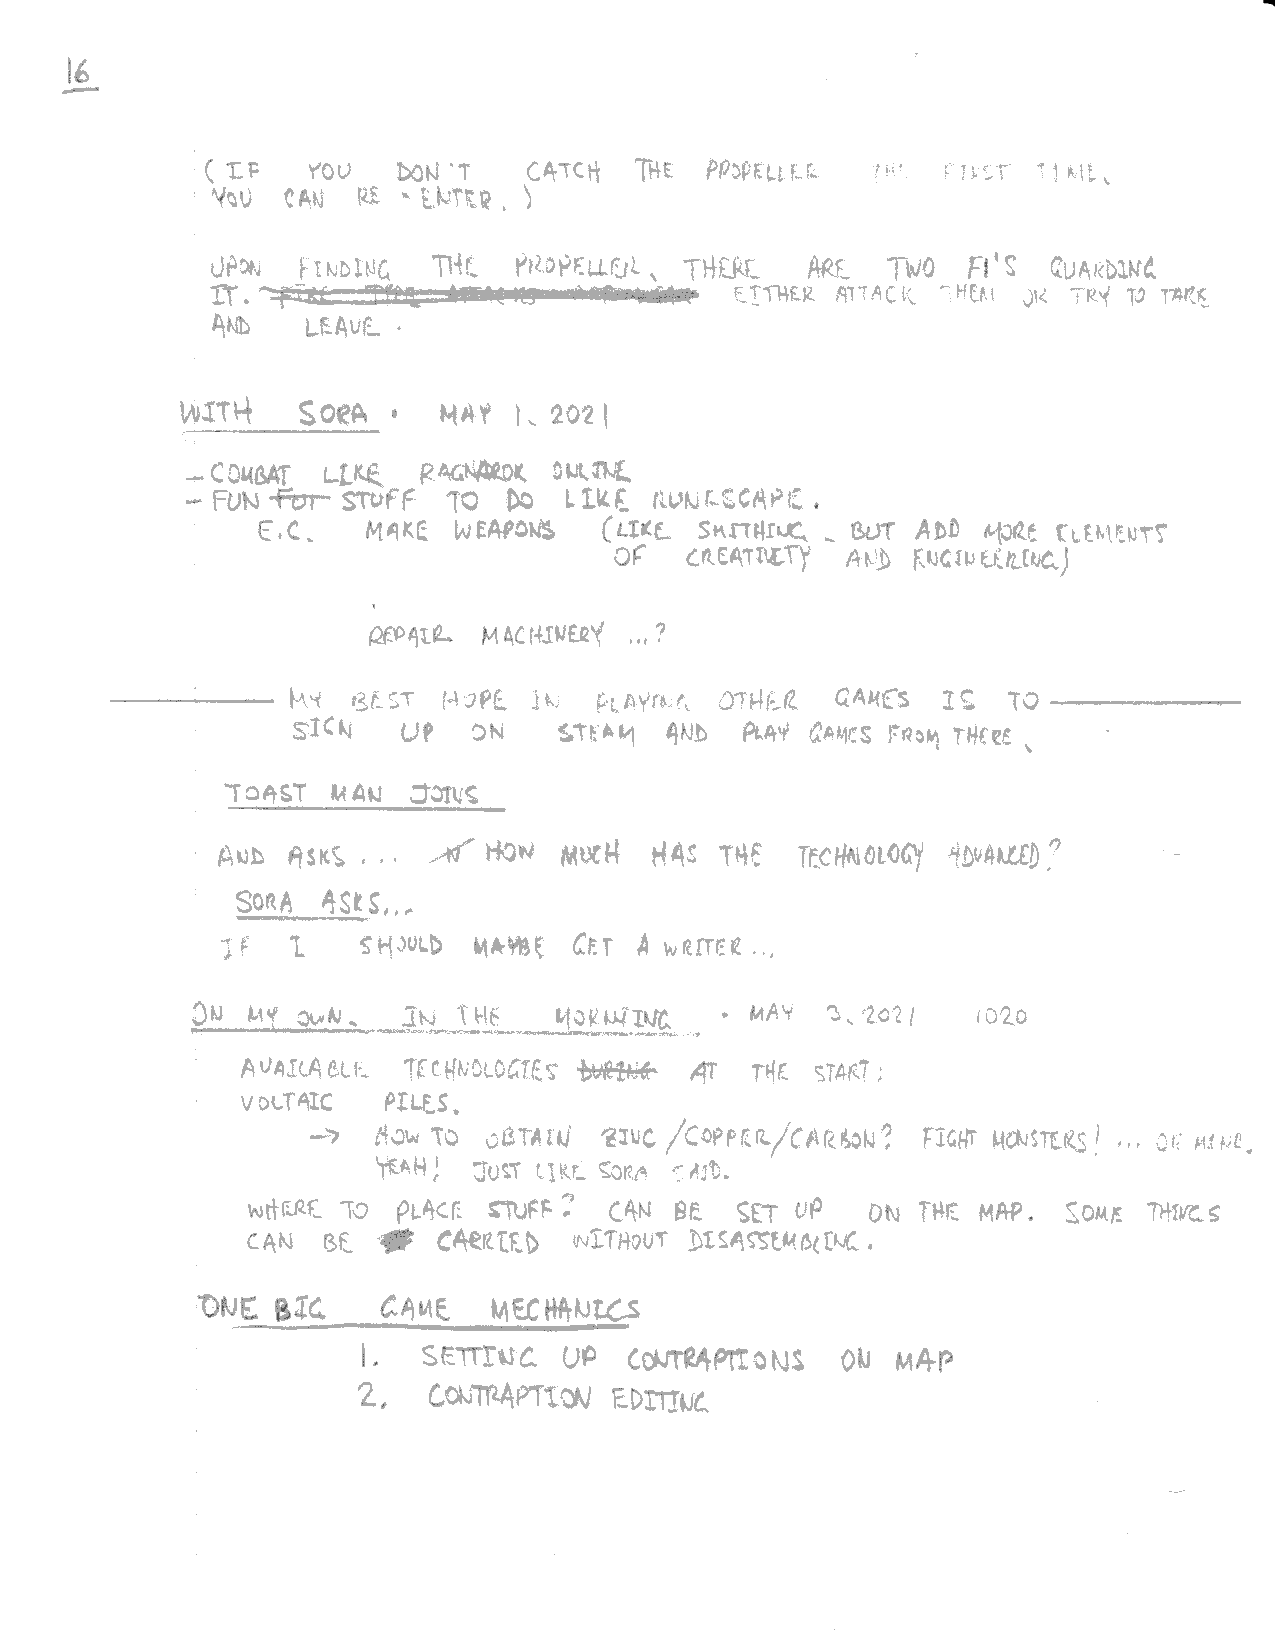 16
(IF YOU DON'T CATCH THE PROPELLER THE FIRST TIME,
YOU CAN RE-ENTER.)
UPON FINDING THE PROPELLER, THERE ARE TWO FI'S GUARDING
IT. EITHER ATTACK THEM OR TRY TO TAKE
AND LEAVE.
WITH SORA. MAY 1, 2021
- COMBAT LIKE RAGNAROK ONLINE
- FUN FOR STUFF TO DO LIKE RUNESCAPE.
E.G. MAKE WEAPONS (LIKE SMITHING, BUT ADD MORE ELEMENTS
OF CREATIVITY AND ENGINEERING)
REPAIR MACHINERY ...?
MY BEST HOPE IN PLAYING OTHER GAMES IS TO
SIGN UP ON STEAM AND PLAY GAMES FROM THERE.
TOAST MAN JOINS
AND ASKS... HOW MUCH HAS THE TECHNOLOGY ADVANCED?
SORA ASKS...
IF I SHOULD MAYBE GET A WRITER...
ON MY OWN. IN THE MORNING. MAY 3, 2021 1020
AVAILABLE TECHNOLOGIES DURING AT THE START:
VOLTAIC PILES.
→ HOW TO OBTAIN ZINC/COPPER/CARBON? FIGHT MONSTERS! ... OR MINE.
YEAH! JUST LIKE SORA SAID.
WHERE TO PLACE STUFF? CAN BE SET UP ON THE MAP. SOME THINGS
CAN BE CARRIED WITHOUT DISASSEMBLING.
ONE BIG GAME MECHANICS
1. SETTING UP CONTRAPTIONS ON MAP
2. CONTRAPTION EDITING